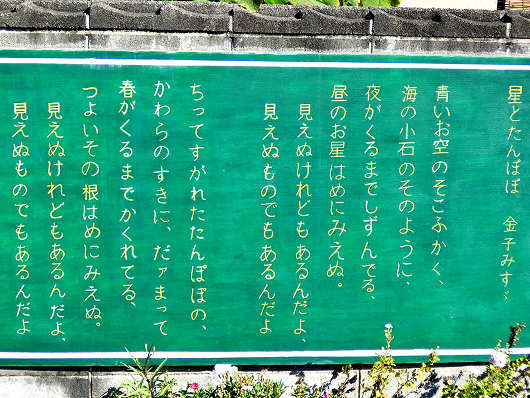 星とたんぽぽ 金子みすゞ
青いお空のそこふかく、
海の小石のそのように、
夜がくるまでしずんでる、
昼のお星はめにみえぬ。
見えぬけれどもあるんだよ、
見えぬものでもあるんだよ
ちってすがれたたんぽぽの、
かわらのすきに、だァまって
春がくるまでかくれてる、
つよいその根はめにみえぬ。
見えぬけれどもあるんだよ、
見えぬものでもあるんだよ